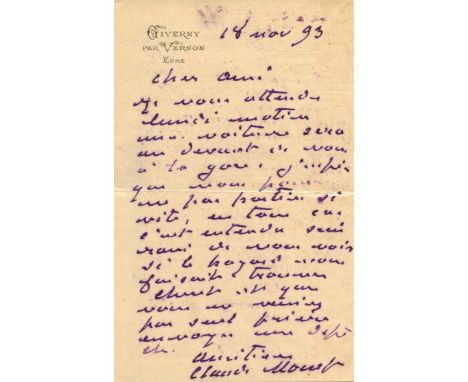 GIVERNY
PAR VERNON
EURE
18 nov 93
cher ami
Je vous attends
lundi matin
une voiture sera
au devant de vous
à la gare, j'espère
que vous
ne pas partir si
vite, en tous cas
c'est entendu
ravi de vous voir
si le hazard vous
faisait trouver
que
vous ne veniez
pas seul prière
envoyer une dépê
che.
Amitiés
Claude Monet